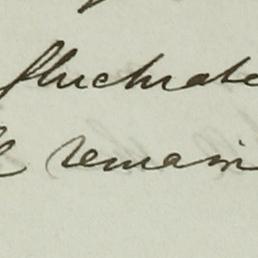 fluctuate
remain